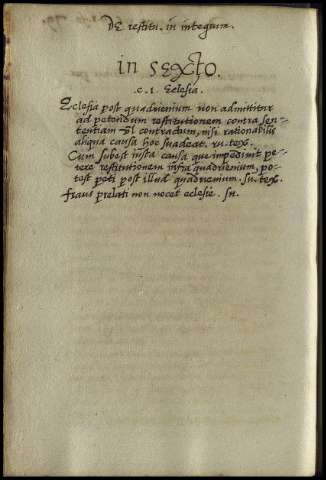 DE restitu. in integrum.
in SEXTO.
.c. 1. Eclesia.
Eclesia post quadrienium non admititur
ad petendum restitutionem contra sen-
tentiam vel contractum, nisi rationabilis
aliqua causa hoc suadeat. tex.
Cum subest iusta causa que impediuit pe-
tere restitutionem infra quadrienium, po-
test peti post illud quadrienium. tex.
fraus prelati non nocet eclesie.